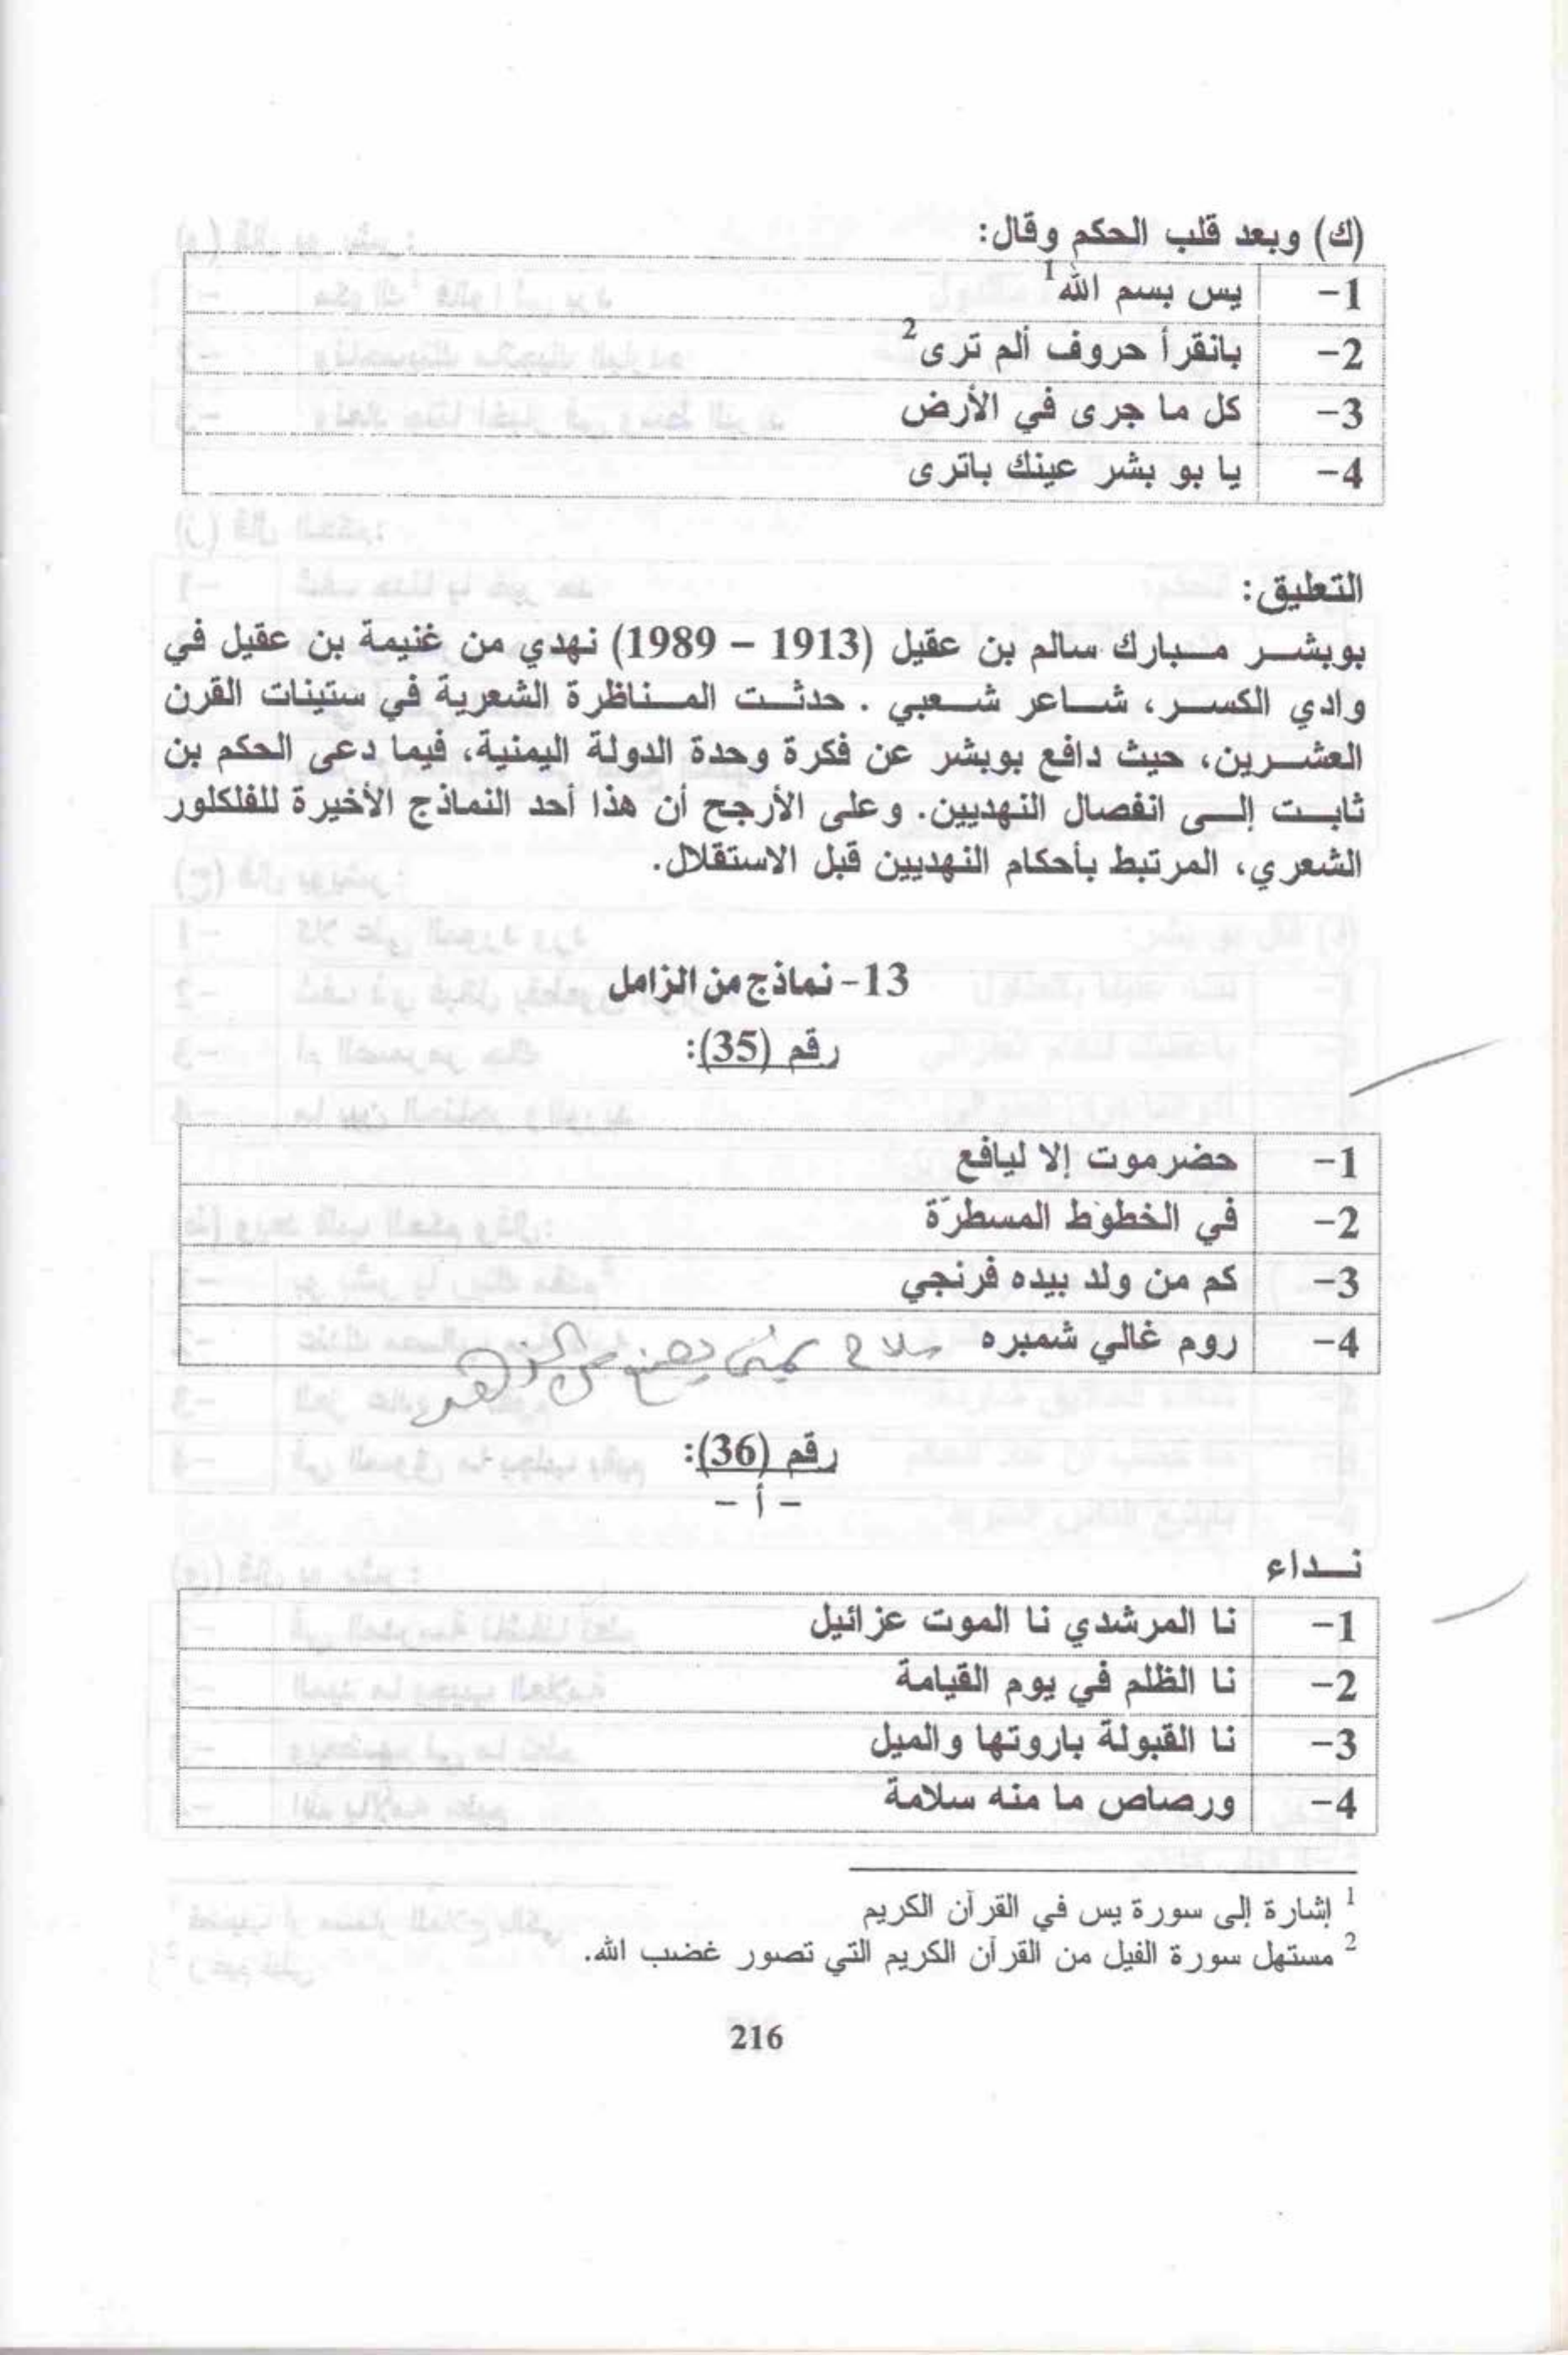 (ك) وبعد قلب الحكم وقال:
1- يس بسم الله1
2- بانقرأ حروف ألم ترى2
3- كل ما جرى في الأرض
4- يا بو بشر عينك باترى
التعليق:
بوبشر مبارك سالم بن عقيل (1913 – 1989) نهدي من غنيمة بن عقيل في
وادي الكسر، شاعر شعبي . حدثت المناظرة الشعرية في ستينات القرن
العشرين، حيث دافع بوبشر عن فكرة وحدة الدولة اليمنية، فيما دعى الحكم بن
ثابت إلى انفصال النهديين. وعلى الأرجح أن هذا أحد النماذج الأخيرة للفلكلور
الشعري، المرتبط بأحكام النهديين قبل الاستقلال.
13- نماذج من الزامل
رقم (35):
1- حضرموت إلا ليافع
2- في الخطوط المسطرّة
3- كم من ولد بيده فرنجي
4- روم غالي شمبره سلاح
رقم (36):
– أ –
نداء
1- نا المرشدي نا الموت عزائيل
2- نا الظلم في يوم القيامة
3- نا القبولة باروتها والميل
4- ورصاص ما منه سلامة
1 إشارة إلى سورة يس في القرآن الكريم
2 مستهل سورة الفيل من القرآن الكريم التي تصور غضب الله.
216